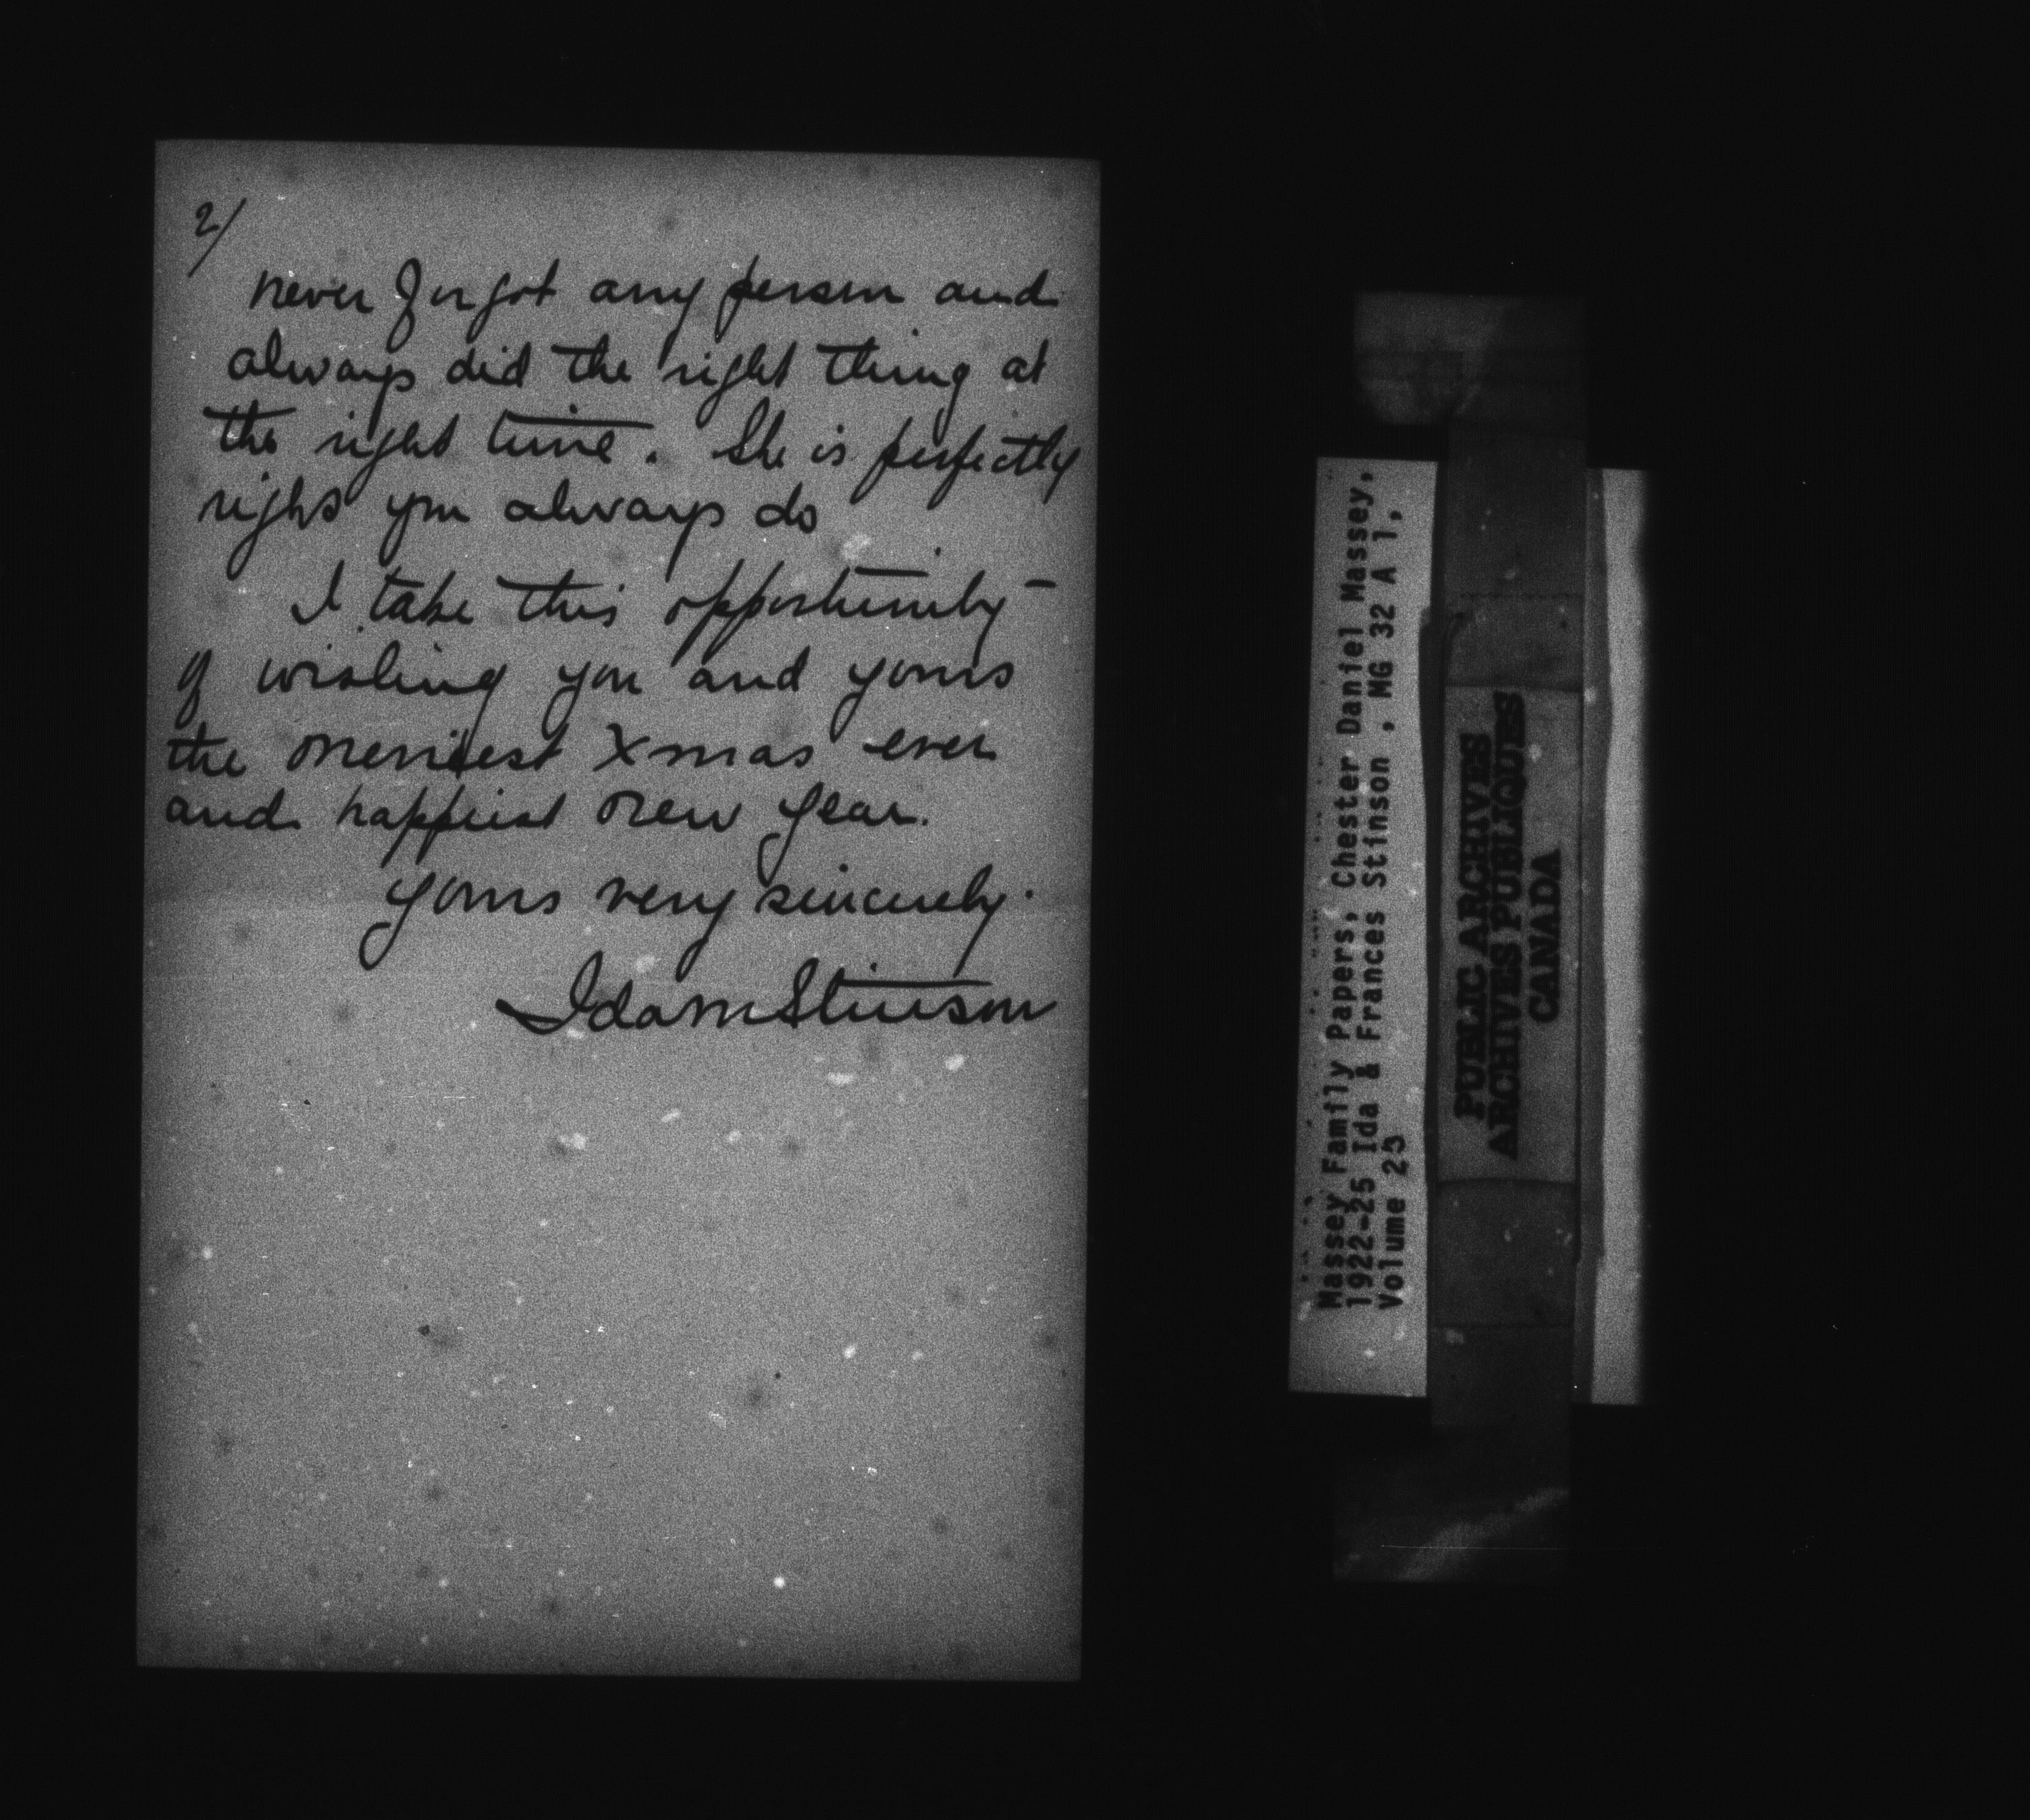 2/
never forgot any person and
always did the right thing at
the right time. She is perfectly
right you always do
I take this opportunity -
of wishing you and yours
the merriest Xmas ever
and happiest New Year.
Yours very sincerely.
Ida M Stinson
Massey Family Papers, Chester Daniel Massey,
1922-25 Ida & Frances Stinson , MG 32 A 1,
Volume 23
PUBLIC ARCHIVES
ARCHIVES PUBLIQUES
CANADA